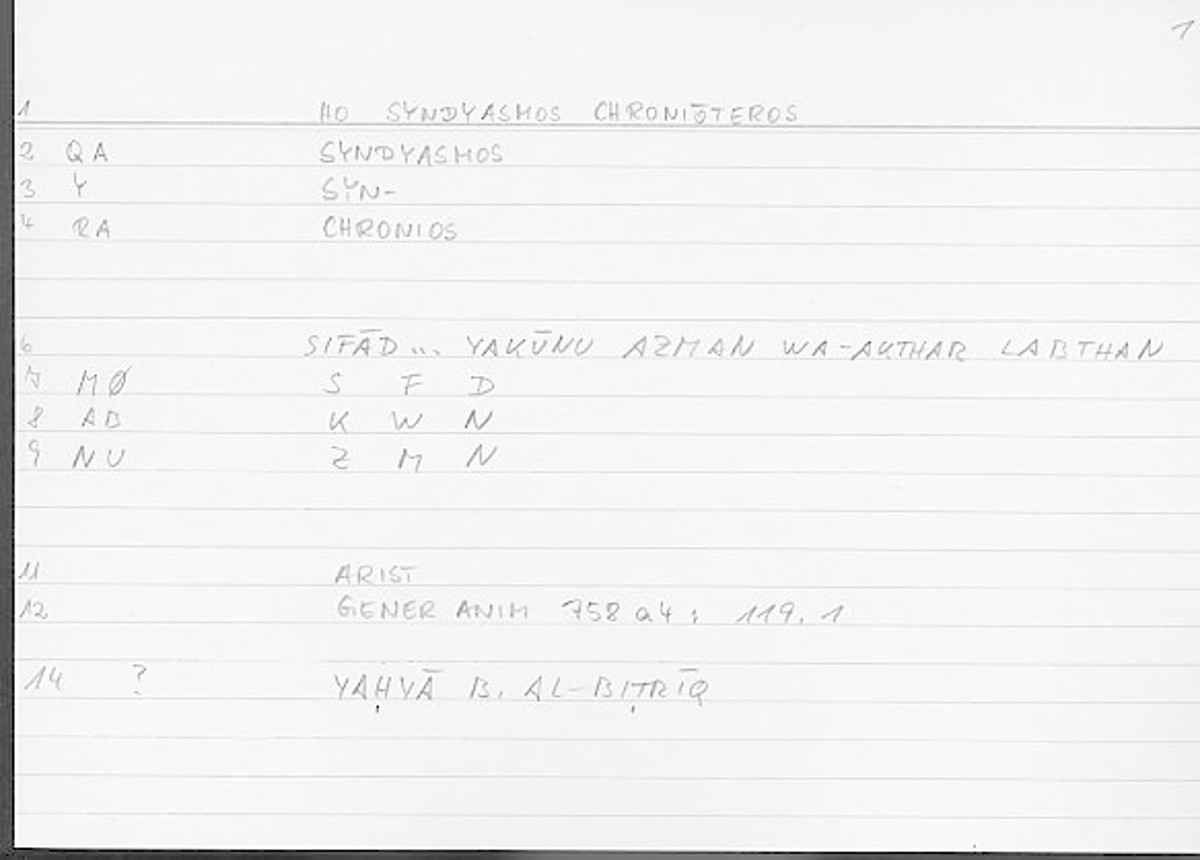 1
1 HO SYNDYASMOS CHRONIŌTEROS
2 QA SYNDYASMOS
3 Y SYN-
4 RA CHRONIOS
6 SIFĀD... YAKŪNU AZMAN WA-AKTHAR LABTHAN
7 MØ S F D
8 AB K W N
9 NU Z M N
11 ARIST
12 GENER ANIM 758 a4; 119.1
14 ? YAḤYĀ B. AL-BIṬRĪQ